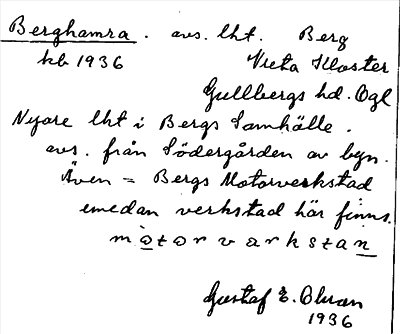 Berghamra. avs. lht. Berg
kb 1936 Vreta Kloster
Gullbergs hd. Ögl
Nyare lht i Bergs Samhälle.
avs. från Södergården av byn.
Även = Bergs Motorverkstad
emedan verkstad här finns.
motorvarkstan
Gustaf E.
1936